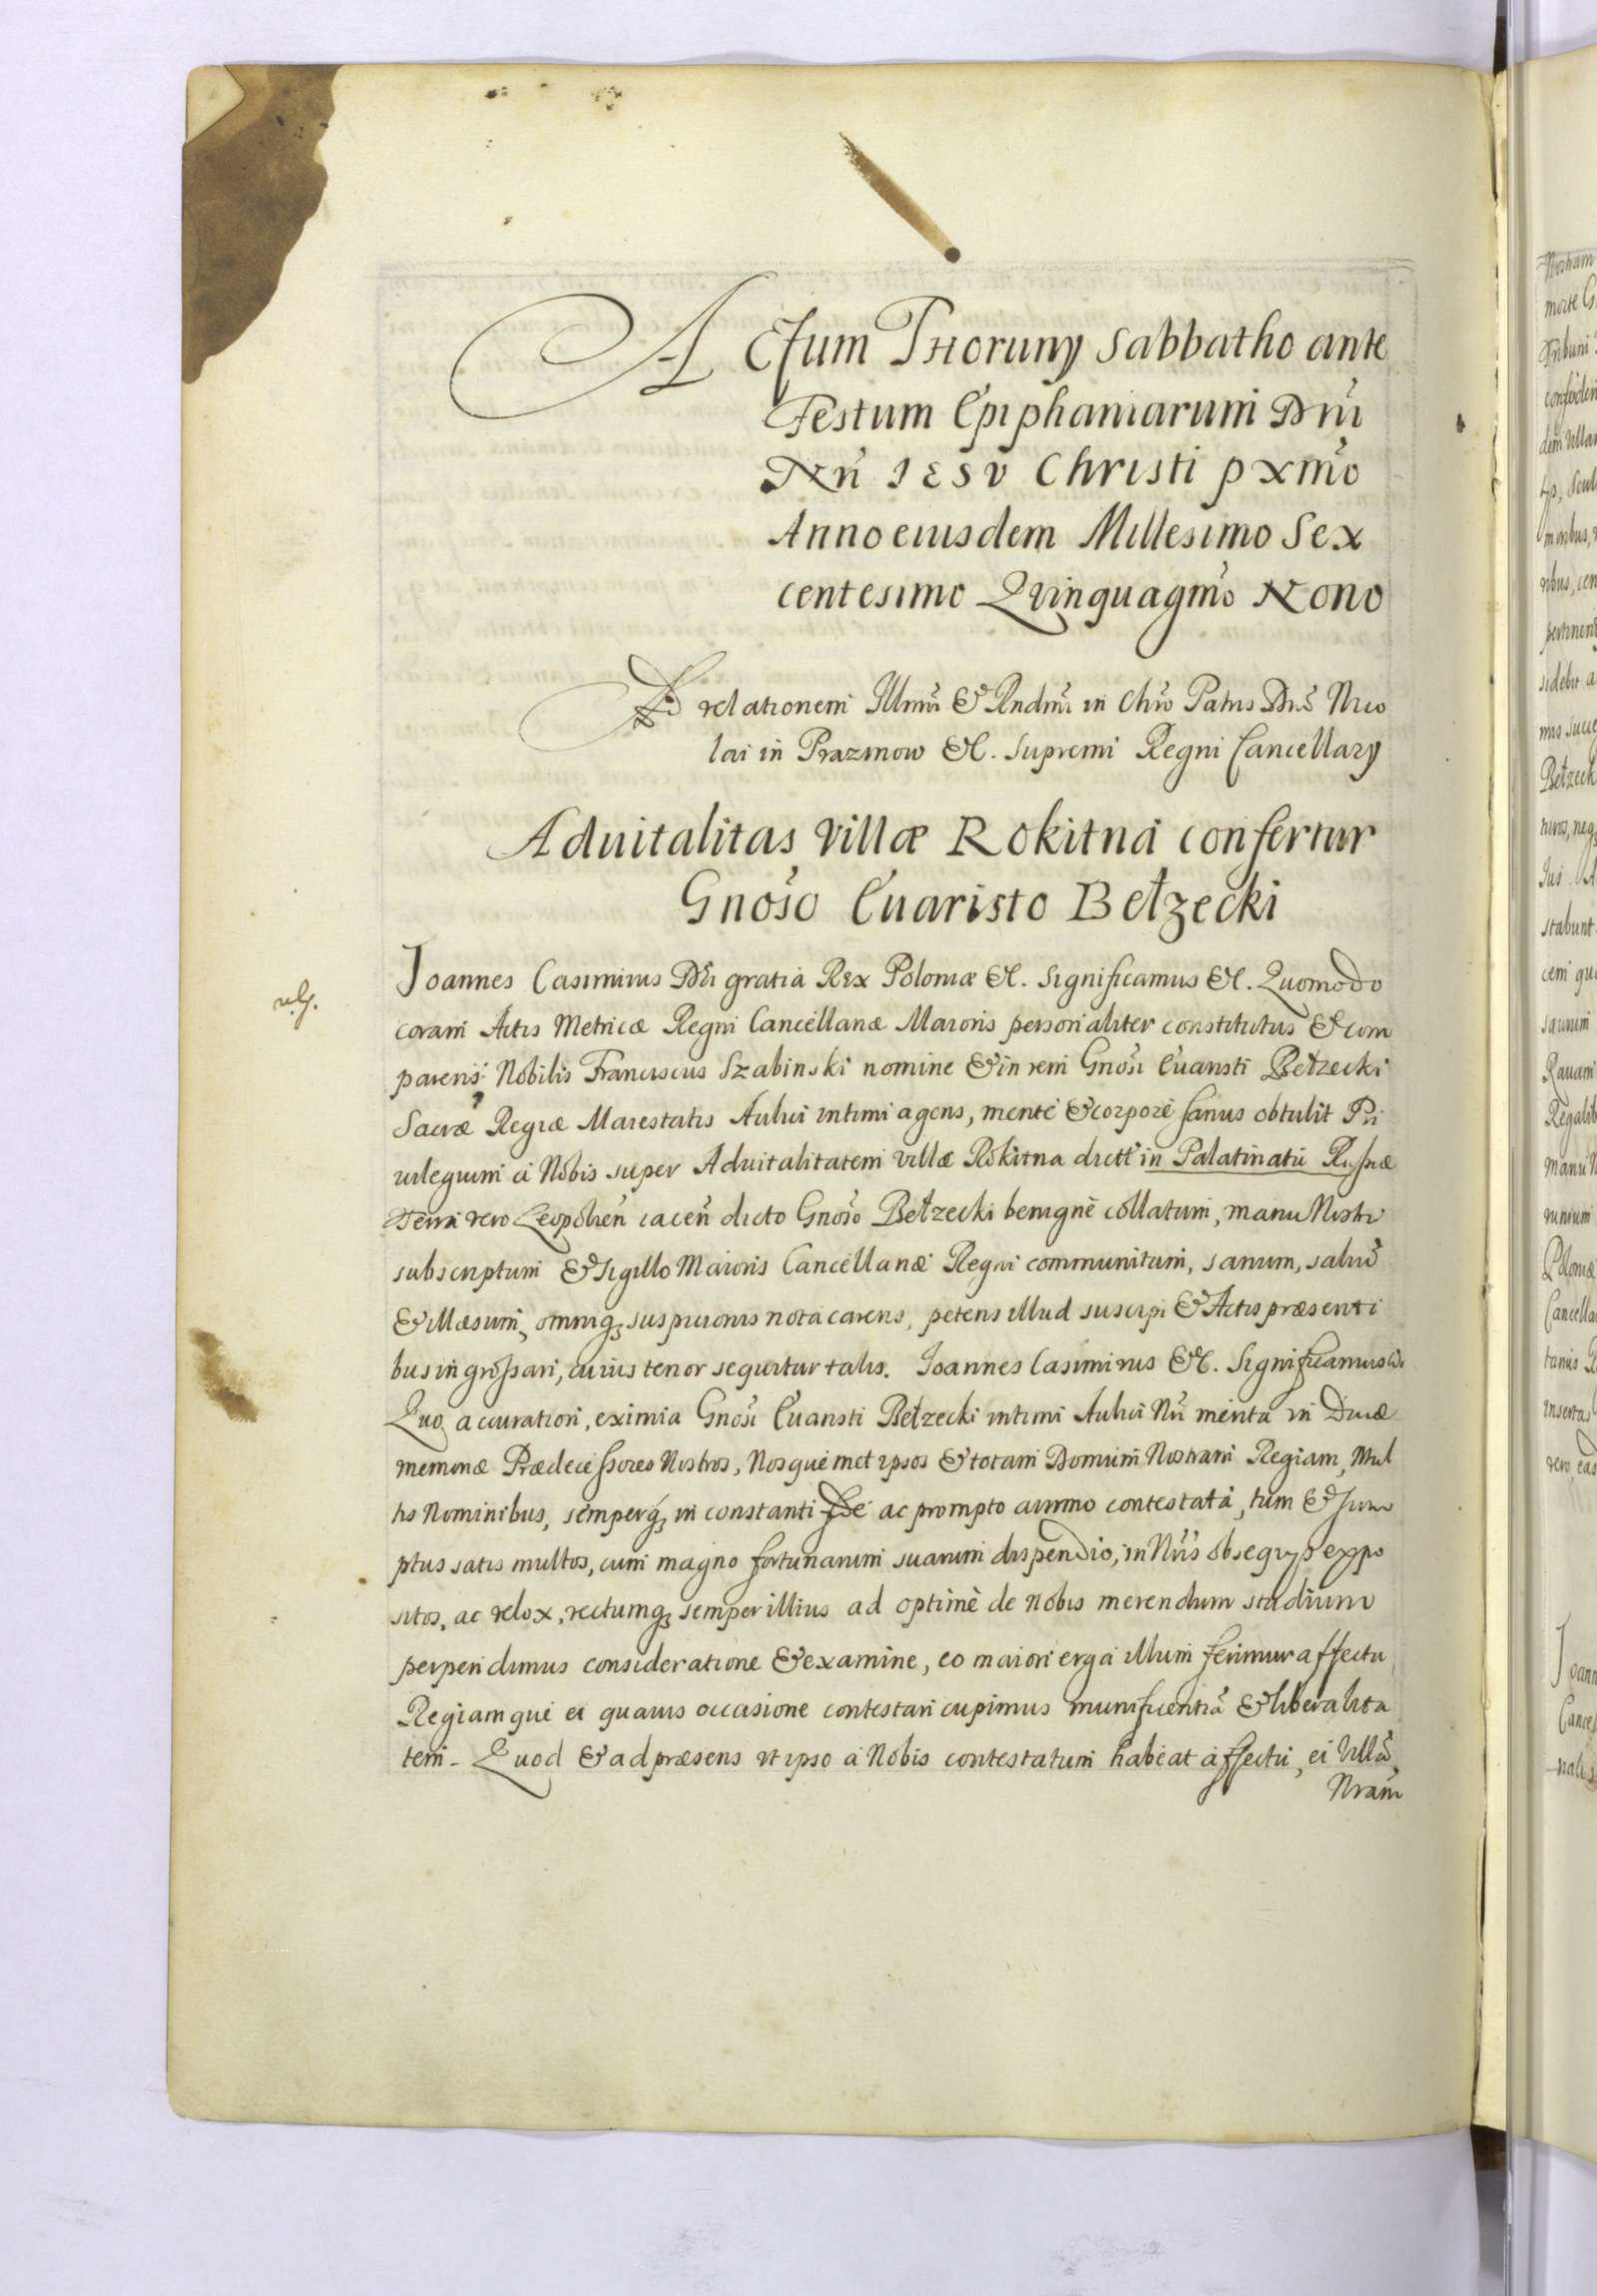 ACtum THoruny Sabbatho ante
Festum Epiphaniarum Dñi
Nñ IESV Christi pxmõ
Anno eiusdem Millesimo Sex
centesimo Qvinquagmõ Nono
Ad relationem Illmi & Rndmi in Chro Patris Dñi Nico
lai in Prazmow &c. Supremi Regni Cancellary
Aduitalitas villæ Rokitna confertur
Gnoso Euaristo Bełzecki
Joannes Casimirus Dei gratia Rex Poloniæ &c. Significamus &c. Quomodo
coram Actis Metricæ Regni Cancellariæ Maioris personaliter constitutus & com
parens Nobilis Franciscus Szabinski nomine & in rem Gnosi Euaristi Bełzecki
Sacræ Regiæ Maiestatis Aulici intimi agens, mente & corpore sanus obtulit Pri
uilegium a Nobis super Aduitalitatem villæ Rokitna dictæ in Palatinatu Russiæ
Terra vero Leopolien iacen dicto Gnoso Bełzecki benignè collatum, manu Nostra
subscriptum & Sigillo Maioris Cancellariæ Regni communitum, sanum, saluũ
& illæsum, omniq; suspicionis nota carens, petens illud suscipi & Actis præsenti
bus ingrossari, cuius tenor sequitur talis. Joannes Casimirus &c. Significamus &c.
Quo accuratiori, eximia Gnosi Euaristi Bełzecki intimi Aulici Nri merita in Diuæ
memoriæ Prædecessores Nostros, Nosque met ipsos & totam Domum Nostram Regiam, Mul
tis Nominibus, semperq; in constanti fide ac prompto animo contestata, tum & Sum
ptus satis multos, cum magno fortunarum suarum dispendio, in Nris obsequys expo
sitos, ac velox, rectumq; semper illius ad optimè de Nobis merendum studium
perpendimus consideratione & examine, eo maiori erga illum ferimur affectu
Regiamque ei quauis occasione contestari cupimus munificentiã & liberalita
tem. Quod & ad præsens vt ipso a Nobis contestatum habeat affectu, ei Villã
Nram